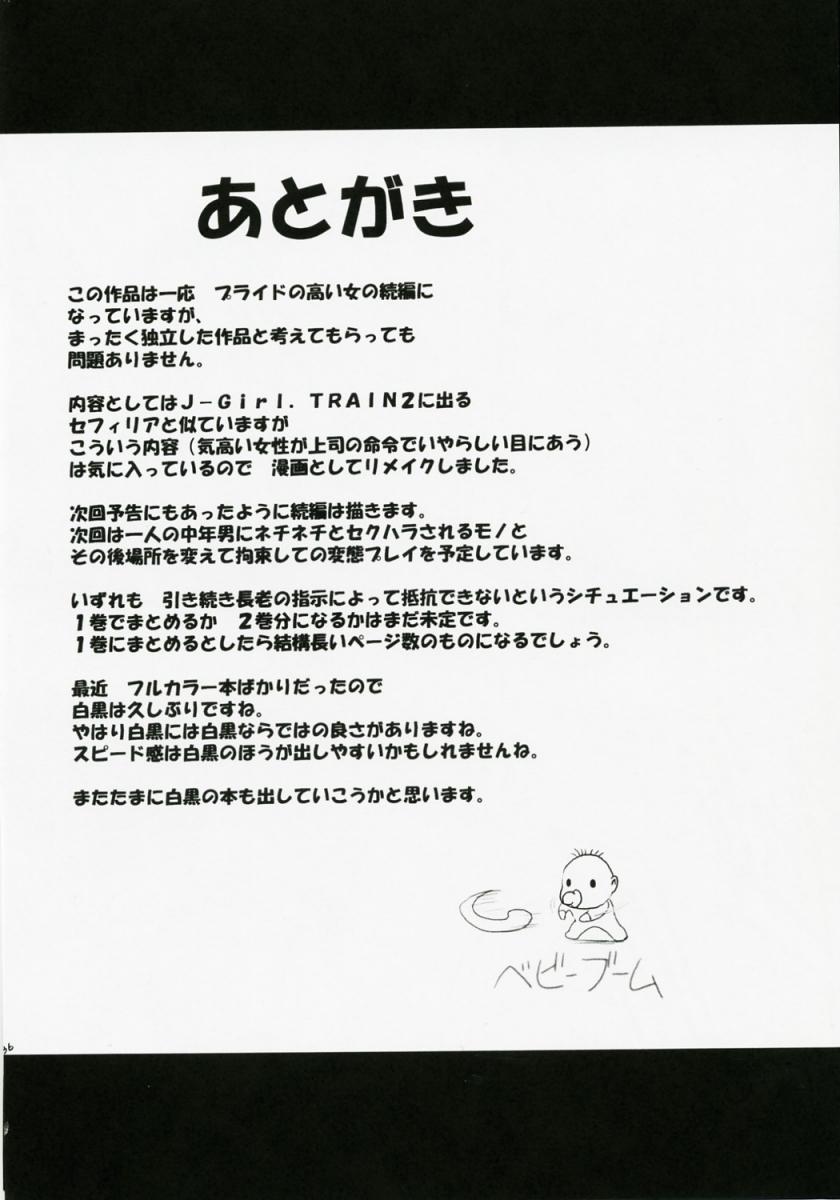 あとがき
この作品は一応　プライドの高い女の続編に
なっていますが、
まったく独立した作品と考えてもらっても
問題ありません。
内容としてはＪ－Ｇｉｒｌ．ＴＲＡＩＮ２に出る
セフィリアと似ていますが
こういう内容（気高い女性が上司の命令でいやらしい目にあう）
は気に入っているので　漫画としてリメイクしました。
次回予告にもあったように続編は描きます。
次回は一人の中年男にネチネチとセクハラされるモノと
その後場所を変えて拘束しての変態プレイを予定しています。
いずれも　引き続き長老の指示によって抵抗できないというシチュエーションです。
１巻でまとめるか　２巻分になるかはまだ未定です。
１巻にまとめるとしたら結構長いページ数のものになるでしょう。
最近　フルカラー本ばかりだったので
白黒は久しぶりですね。
やはり白黒には白黒ならではの良さがありますね。
スピード感は白黒のほうが出しやすいかもしれませんね。
またたまに白黒の本も出していこうかと思います。
ベビーブーム